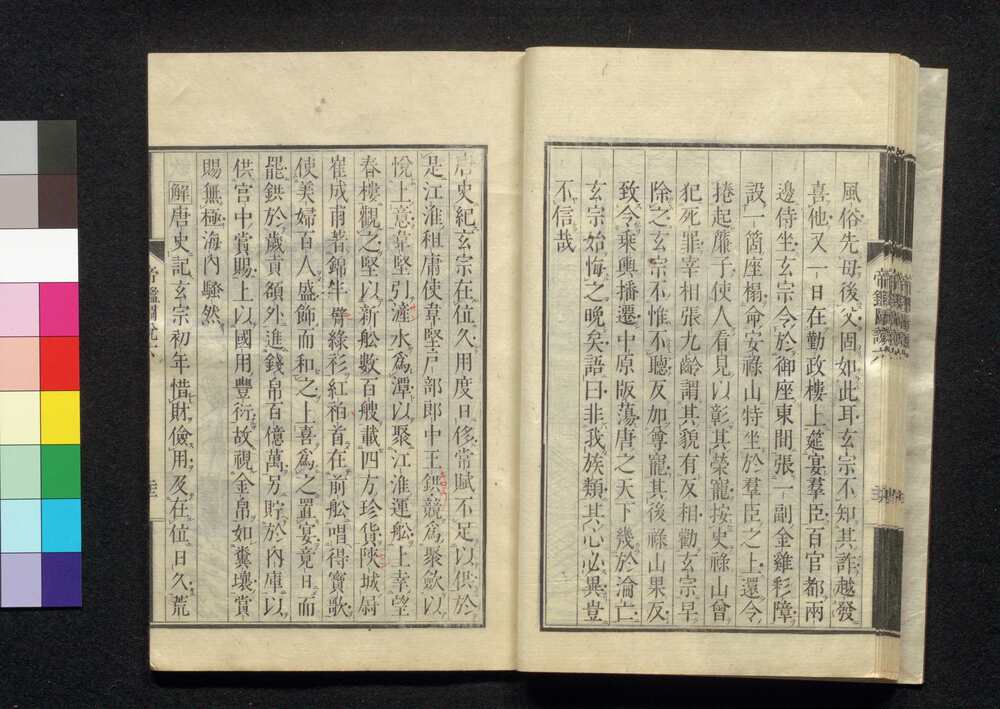 風俗先母後父固如此耳玄宗不知其詐越發
喜他又一日在勤政樓上筵宴羣臣百官都兩
邊侍坐玄宗令於御座東間張一副金雞彩障
設一箇座榻命安祿山特坐於羣臣之上還令
捲起簾子使人看見以彰其榮寵按史祿山曾
犯死罪宰相張九齡謂其貌有反相勸玄宗早
除之玄宗不惟不聽反加尊寵其後祿山果反
致令乘輿播遷中原版蕩唐之天下幾於淪亡
玄宗始悔之晚矣語曰非我族類其心必異豈
不信哉
唐史紀玄宗在位久用度日侈常賦不足以供於
是江淮租庸使韋堅戶部郎中王鉷競爲聚歛以
悅上意韋堅引滻水爲潭以聚江淮運舩上幸望
春樓觀之堅以新舩數百艘載四方珍貨陝城尉
崔成甫著錦半臂綠衫紅袹首在前舩唱得寶歌
使美婦百人盛飾而和之上喜爲之置宴竟日而
罷鉷於歲貢額外進錢帛百億萬另貯於內庫以
供宮中賞賜上以國用豐衍故視金帛如糞壤賞
賜無極海內騷然
解唐史記玄宗初年惜財儉用及在位日久荒
帝鑑圖說六